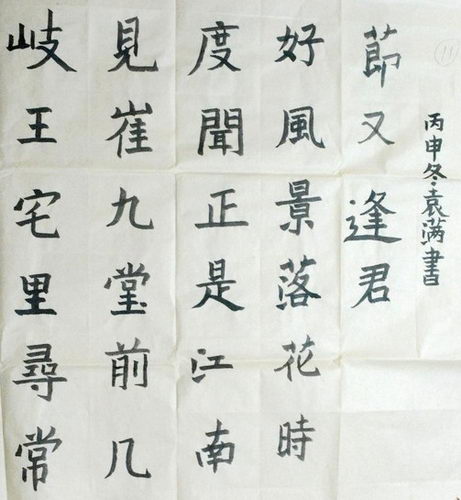 岐王宅里尋常
見崔九堂前几
度聞正是江南
好風景落花時
莭又逢君
丙申冬·袁满書
11